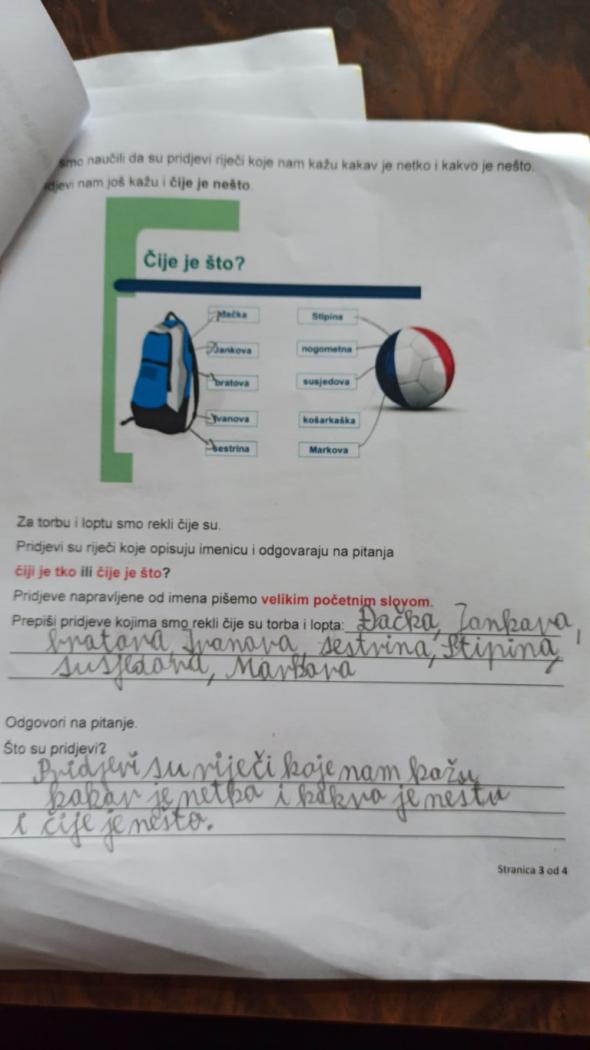 smo naučili da su pridjevi riječi koje nam kažu kakav je netko i kakvo je nešto.
djevi nam još kažu i čije je nešto.
Čije je što?
đačka
Jankova
bratova
Ivanova
sestrina
Stipina
nogometna
susjedova
košarkaška
Markova
Za torbu i loptu smo rekli čije su.
Pridjevi su riječi koje opisuju imenicu i odgovaraju na pitanja
čiji je tko ili čije je što?
Pridjeve napravljene od imena pišemo velikim početnim slovom.
Prepiši pridjeve kojima smo rekli čije su torba i lopta: Đačka, Jankova,
bratova, Ivanova, sestrina, Stipina,
susjedova, Markova
Odgovori na pitanje.
Što su pridjevi?
Pridjevi su riječi koje nam kažu
kakav je netko i kakva je nestu
i čije je nešto.
Stranica 3 od 4